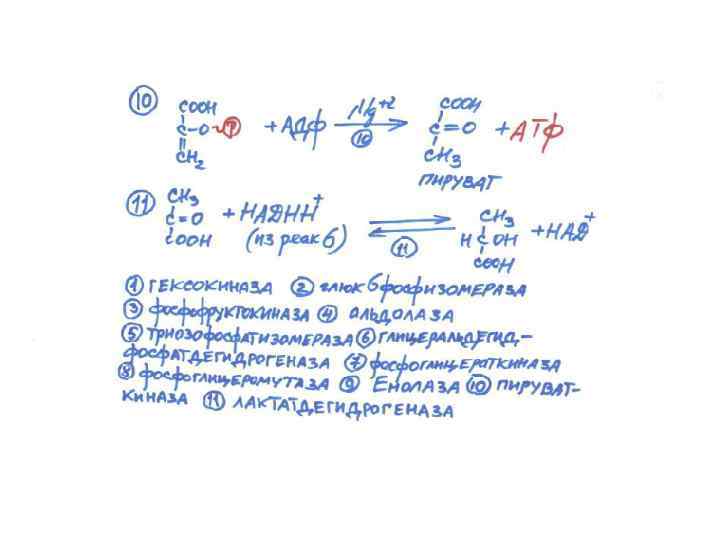 ⑩ COOH COOH
C-O~Ⓟ +АДФ Mg+2 C=O +АТФ
CH2 ⑩ CH3
ПИРУВАТ
⑪ CH3 CH3
C=O +НАДНН+ H C OH +НАД+
COOH (из реак 6) ⑪ COOH
① ГЕКСОКИНАЗА ② глюк 6 фосфизомераза
③ фосфофруктокиназа ④ альдолаза
⑤ ТРИОЗОФОСФАТИЗОМЕРАЗА ⑥ ГЛИЦЕРАЛЬДЕГИД-
ФОСФАТДЕГИДРОГЕНАЗА ⑦ фосфоглицераткиназа
⑧ фосфоглицеромутаза ⑨ ЕНОЛАЗА ⑩ ПИРУВАТ-
КИНАЗА ⑪ ЛАКТАТДЕГИДРОГЕНАЗА